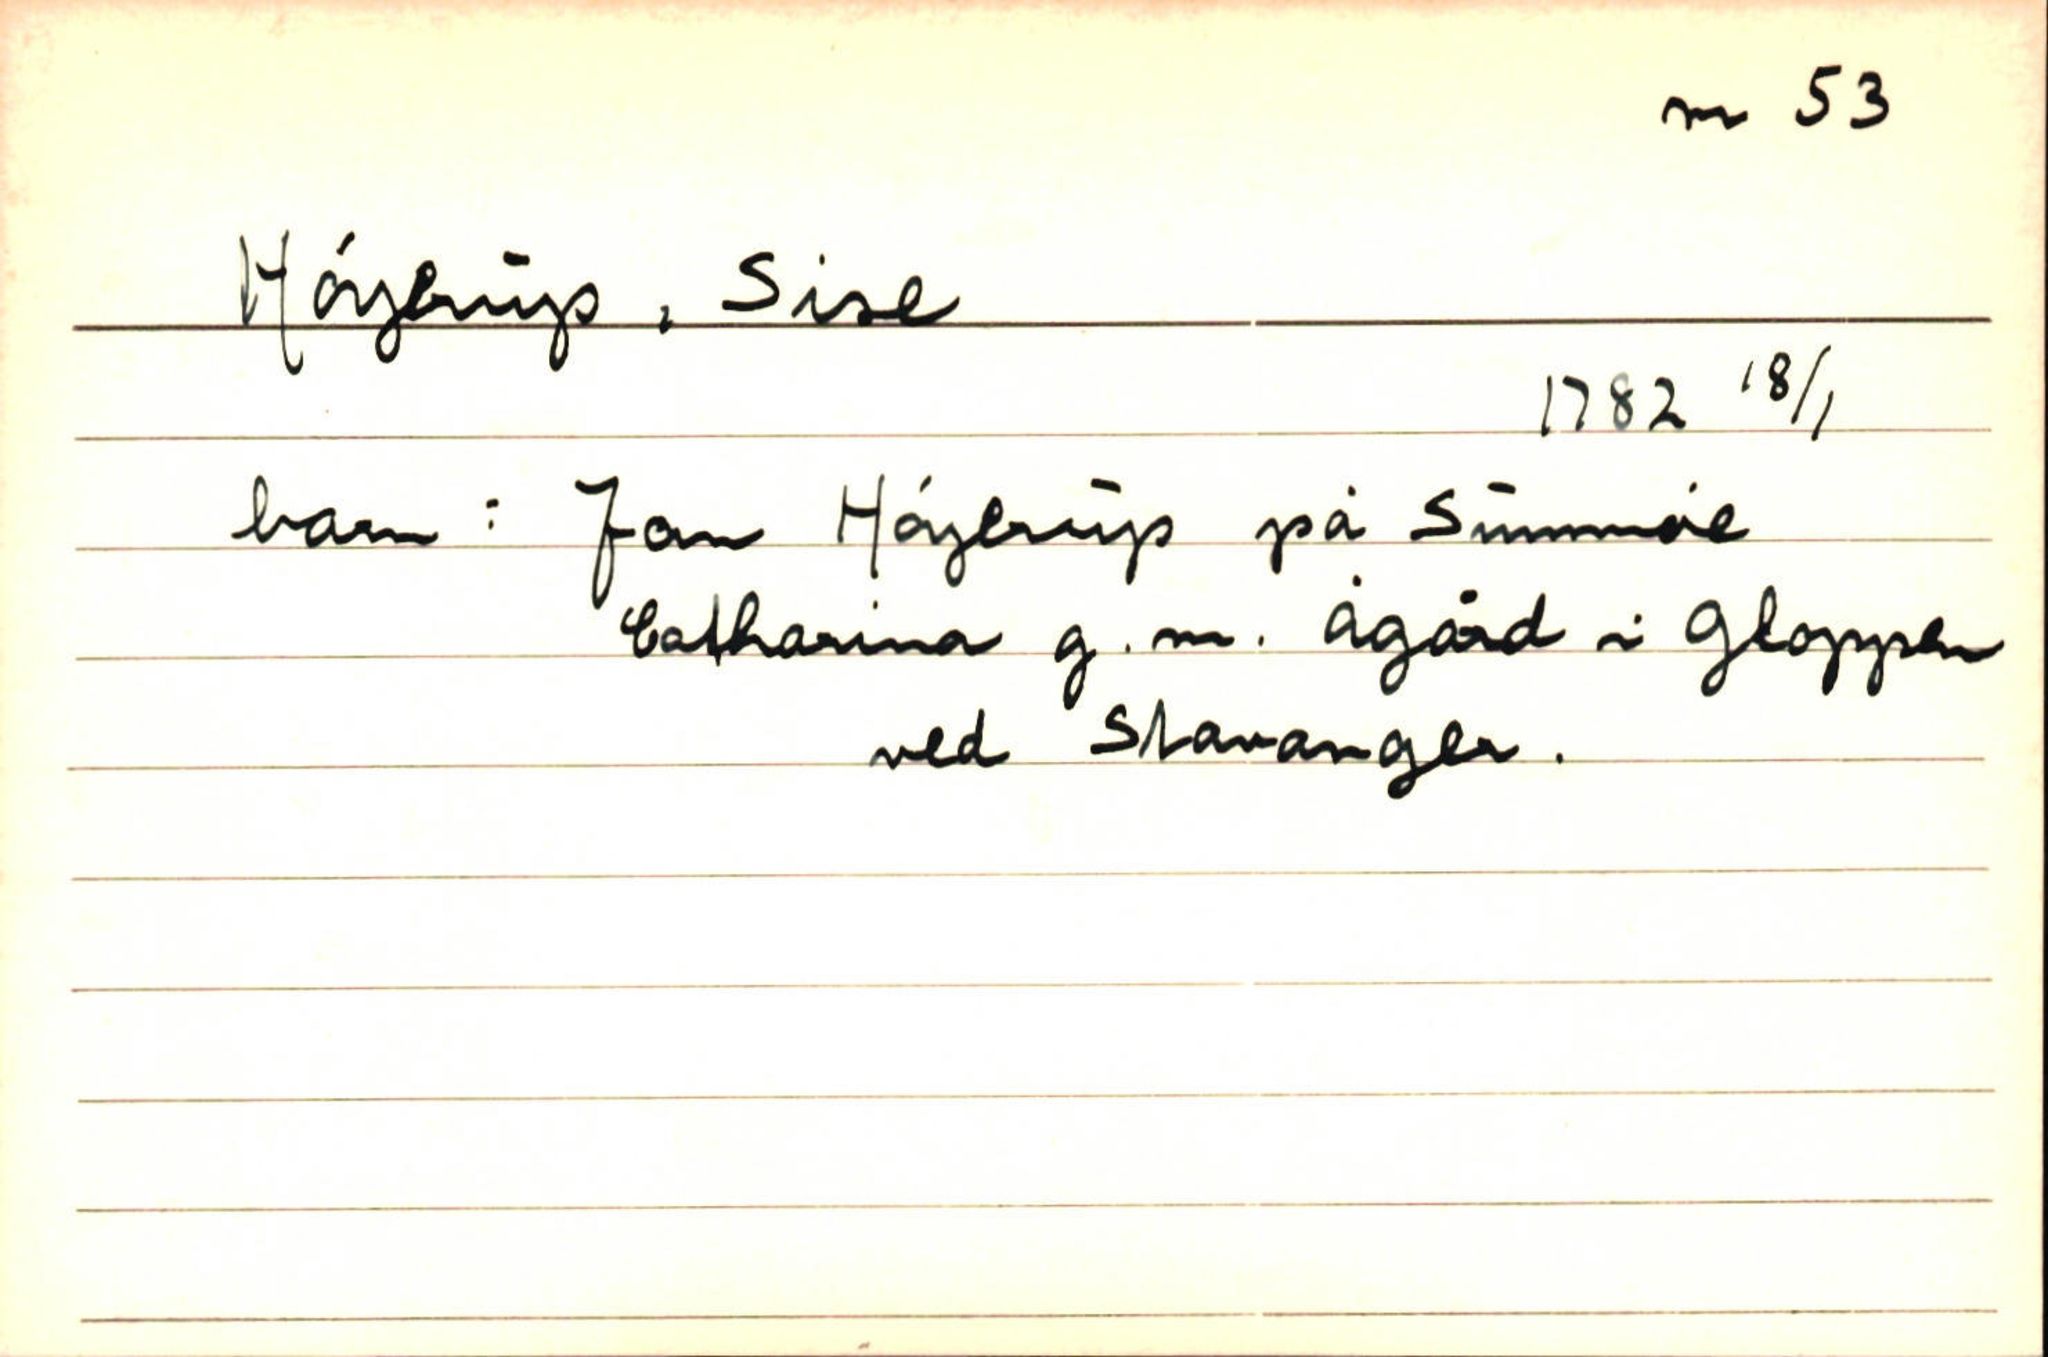 m 53
Höyerup, Sise
1782 18/1
barn: Jan Höyerup på Sunmöe
Catharina g.m. Ågård i Gloppen
ved Stavanger.